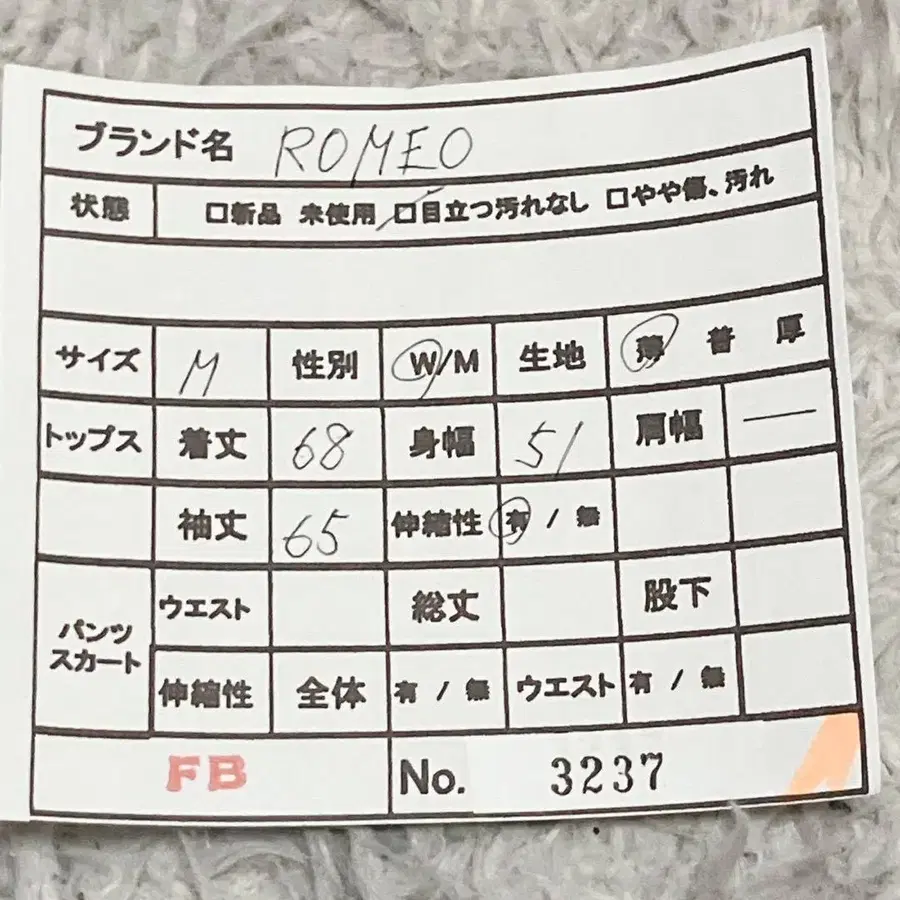 ブランド名 ROMEO
状態 □新品 未使用 □目立つ汚れなし □やや傷、汚れ
サイズ M 性別 W/M 生地 薄 普 厚
トップス 着丈 68 身幅 51 肩幅 —
袖丈 65 伸縮性 有 / 無
パンツ スカート ウエスト 総丈 股下
伸縮性 全体 有 / 無 ウエスト 有 / 無
FB No. 3237